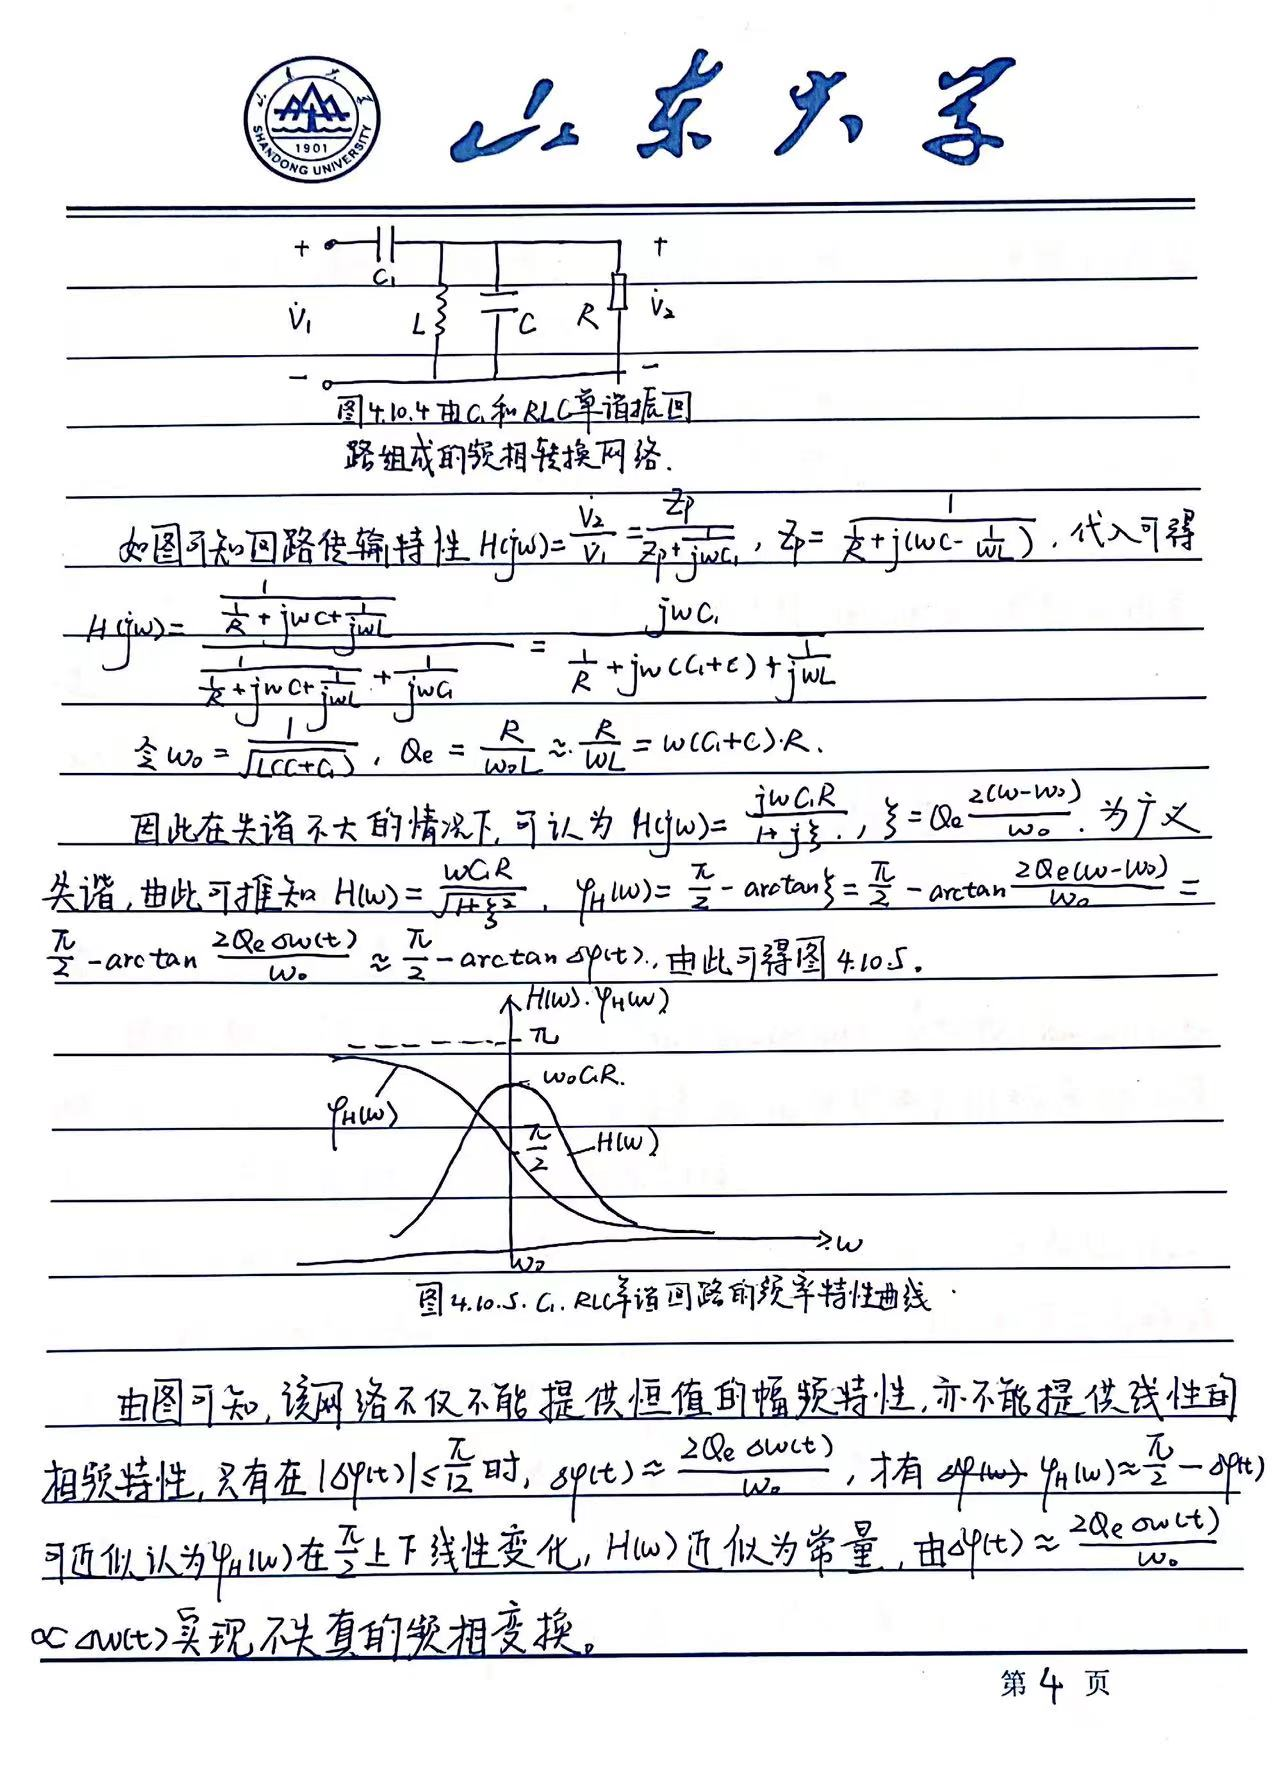 山东大学
SHANDONG UNIVERSITY
1901
+ C₁ +
V̇₁ L C R V̇₂
- -
图4.10.4 由C₁和RLC单谐振回
路组成的频相转换网络.
如图可知回路传输特性 H(jw)=V̇₂/V̇₁=Zp/(Zp+1/(jwC₁)), Zp=1/(1/R+j(wC-1/(wL))), 代入可得
H(jw)=(1/(1/R+jwC+1/(jwL)))/(1/(1/R+jwC+1/(jwL))+1/(jwC₁))=jwC₁/(1/R+jw(C₁+C)+1/(jwL))
令w₀=1/√(L(C+C₁)), Qe=R/(w₀L)≈R/(wL)=w(C₁+C)·R.
因此在失谐不大的情况下,可认为 H(jw)=jwC₁R/(1+jξ), ξ=Qe 2(w-w₀)/w₀. 为广义
失谐,由此可推知 H(w)=wC₁R/√(1+ξ²), φH(w)=π/2-arctanξ=π/2-arctan 2Qe(w-w₀)/w₀=
π/2-arctan 2QeΔw(t)/w₀≈π/2-arctanΔφ(t).,由此可得图4.10.5.
H(w).φH(w)
π
w₀C₁R.
φH(w)
π/2
H(w)
w
w₀
图4.10.5. C₁. RLC单谐回路的频率特性曲线.
由图可知,该网络不仅不能提供恒值的幅频特性,亦不能提供线性的
相频特性,只有在|Δφ(t)|≤π/12时, Δφ(t)≈2QeΔw(t)/w₀, 才有 φH(w)≈π/2-Δφ(t)
可近似认为φH(w)在π/2上下线性变化, H(w)近似为常量, 由Δφ(t)≈2QeΔw(t)/w₀
∝Δw(t)实现不失真的频相变换。
第4页